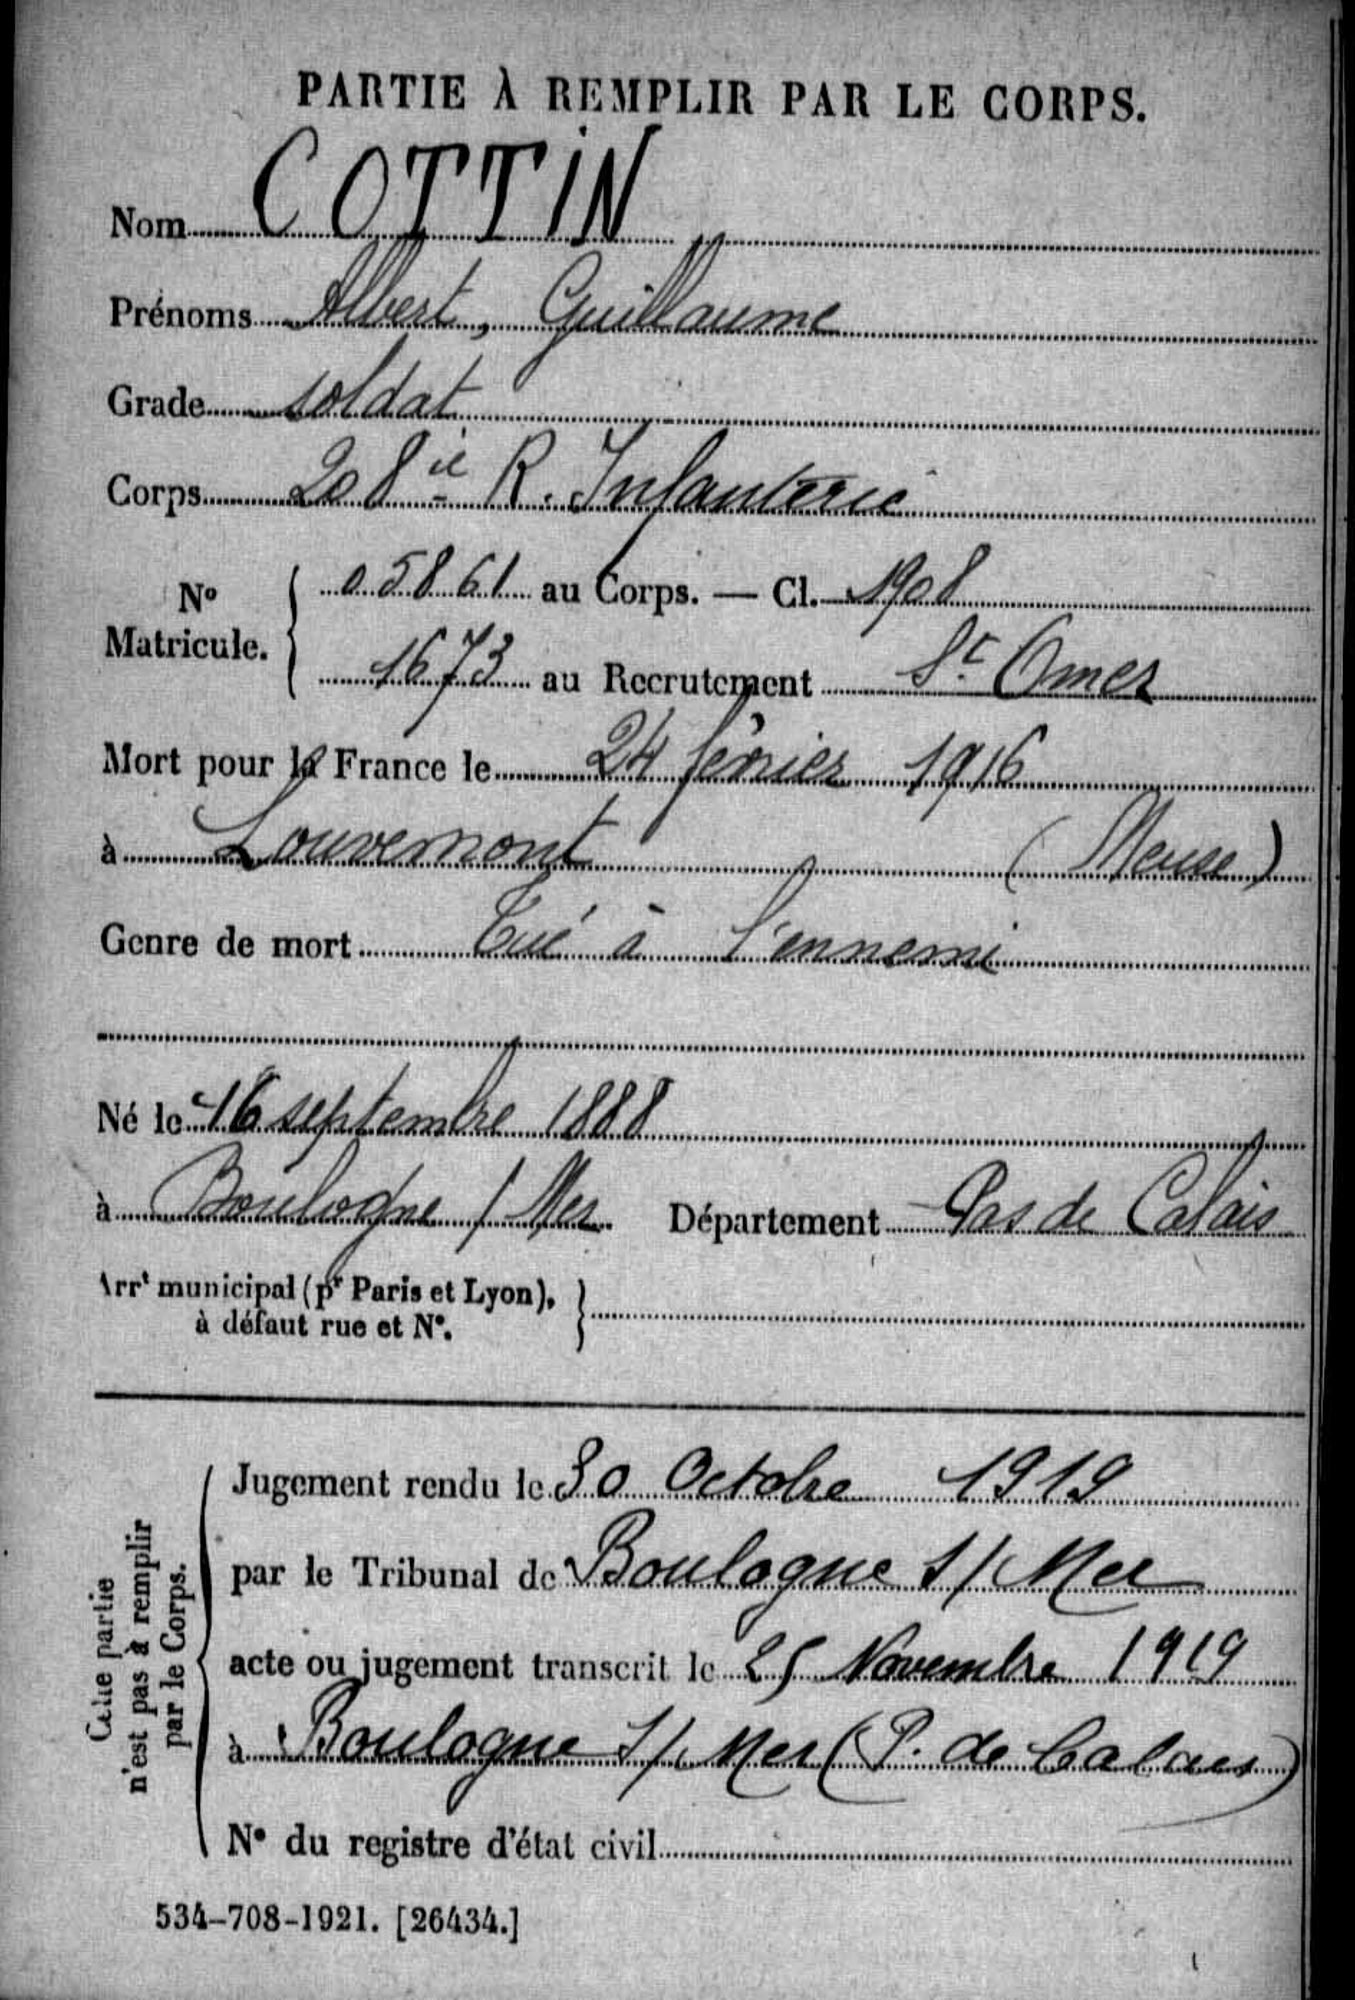 PARTIE À REMPLIR PAR LE CORPS.
Nom COTTIN
Prénoms Albert, Guillaume
Grade soldat
Corps 208ie R. Infanterie
No Matricule. { 05861 au Corps. — Cl. 1908
1673 au Recrutement St. Omer
Mort pour la France le 24 février 1916
à Louvemont (Meuse)
Genre de mort Tué à l'ennemi
Né le 16 septembre 1888
à Boulogne / Mer Département Pas de Calais
Arrt municipal (pr Paris et Lyon), }
à défaut rue et No.
Cette partie n'est pas à remplir par le Corps.
Jugement rendu le 30 Octobre 1919
par le Tribunal de Boulogne s/ Mer
acte ou jugement transcrit le 25 Novembre 1919
à Boulogne s/ Mer (P. de Calais)
No du registre d'état civil
534-708-1921. [26434.]